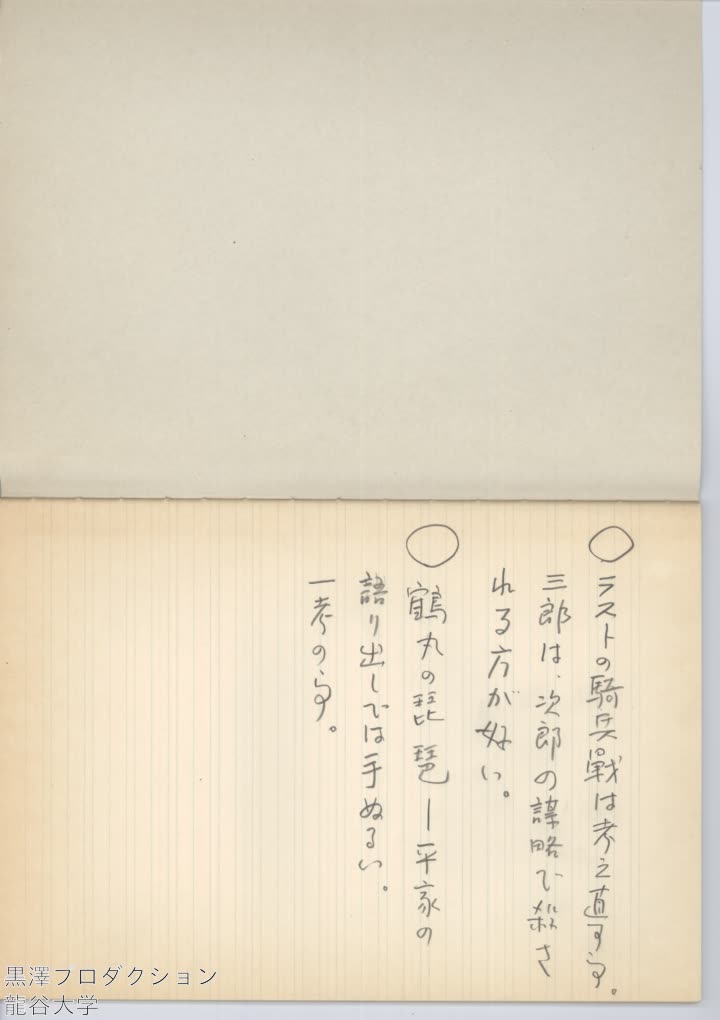 ○ ラストの騎兵戦は考え直す事。
三郎は、次郎の謀略で殺さ
れる方が好い。
○ 鶴丸の琵琶ー平家の
語り出しでは手ぬるい。
一考の事。
黒澤プロダクション
龍谷大学